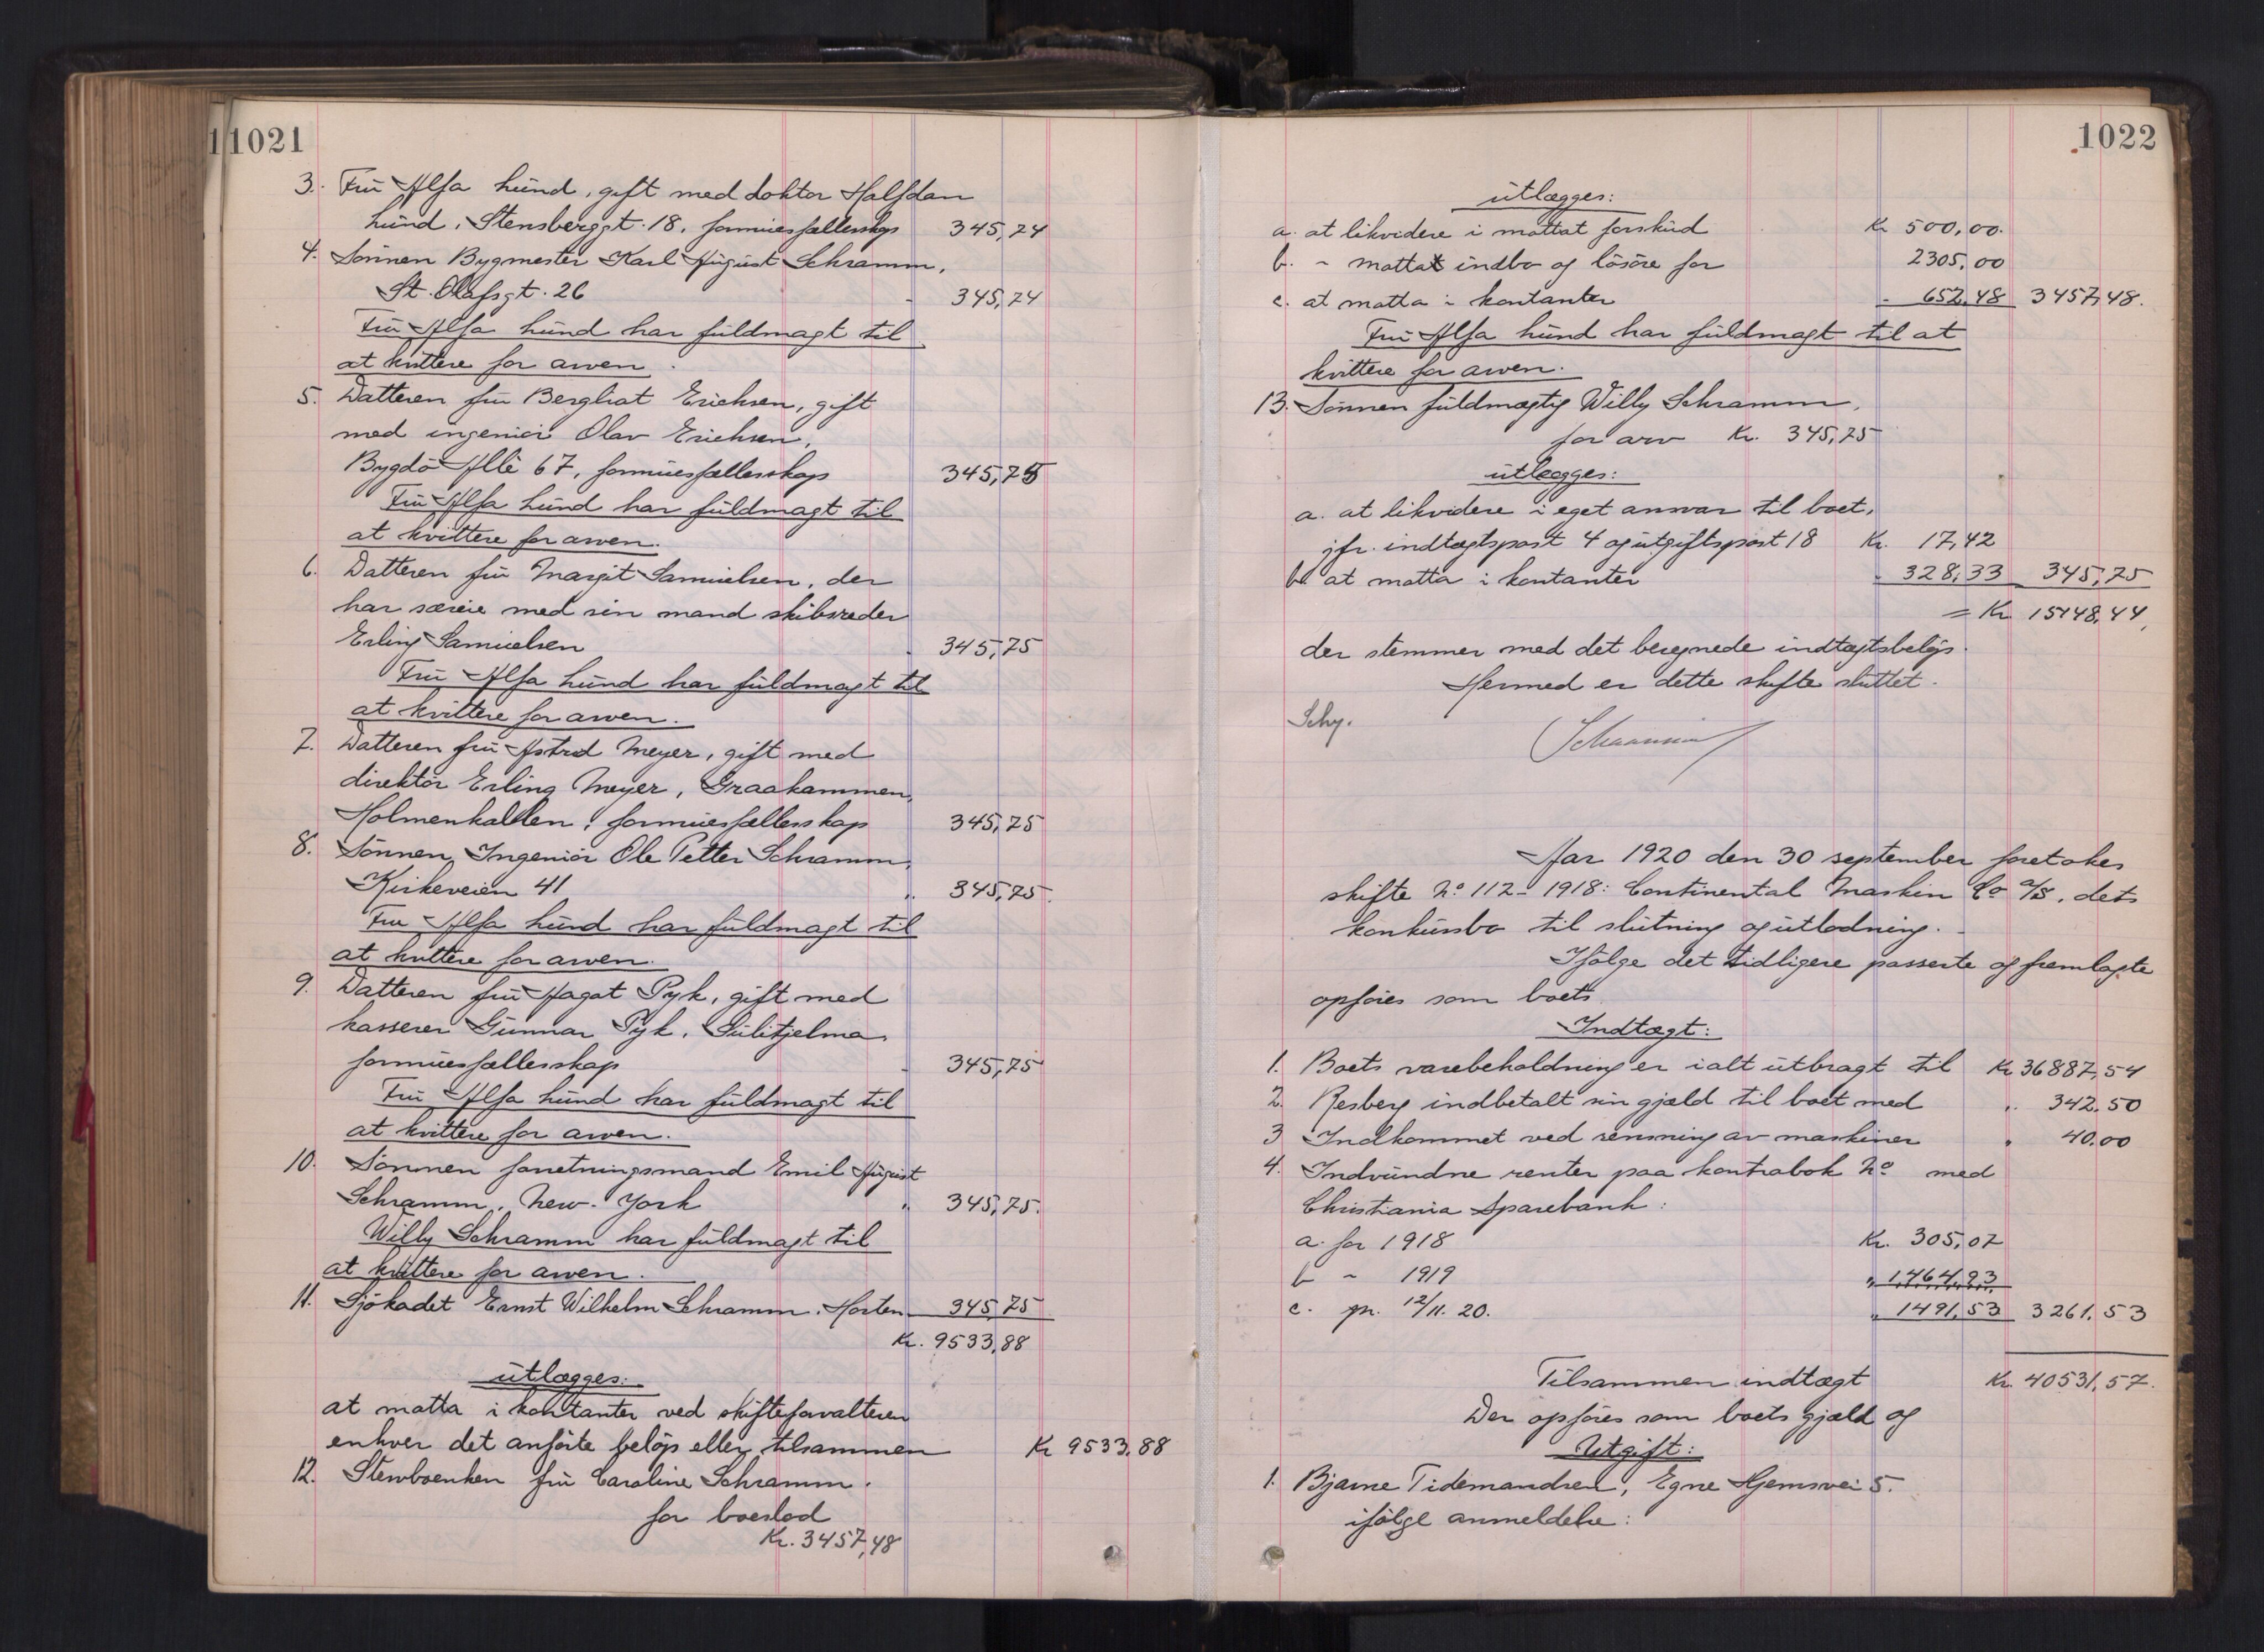 11021
3. Frü Alfa Lünd, gift med doktor Halfdan
Lünd, Stensberggt. 18, formüesfællesskap 345,74
4. Sönnen Bygmester Karl Aügüst Schramm,
St. Olafsgt. 26 - 345,74
Frü Alfa Lünd har füldmagt til
at kvittere for arven.
5. Datteren frü Bergliot Erichsen, gift
med ingeniör Olav Erichsen,
Bygdö Allè 67, formüesfællesskap 345,75
Frü Alfa Lünd har füldmagt til
at kvittere for arven.
6. Datteren frü Margit Samüelsen, der
har særeie med sin mand skibsreder
Erling Samüelsen - 345,75
Frü Alfa Lünd har füldmagt til
at kvittere for arven.
7. Datteren frü Astrid Meyer, gift med
direktör Erling Meyer, Graakammen,
Holmenkollen, formüesfællesskap 345,75
8. Sönnen, Ingeniör Ole Petter Schramm,
Kirkeveien 41 „ 345,75.
Frü Alfa Lünd har füldmagt til
at kvittere for arven.
9. Datteren frü Aagot Pyk, gift med
kasserer Günnar Pyk, Sülitjelma,
formüesfællesskap - 345,75
Frü Alfa Lünd har füldmagt til
at kvittere for arven.
10. Sönnen forretningsmand Emil Aügüst
Schramm, New-York „ 345,75.
Willy Schramm har füldmagt til
at kvittere for arven.
11. Sjökadet Ernst Wilhelm Schramm, Horten 345,75
Kr. 9533,88
ütlægges:
at motta i kontanter ved skifteforvalteren
enhver det anförte belöp eller tilsammen Kr 9533,88
12. Stervboenken frü Caroline Schramm.
for boeslod
Kr. 3457,48
1022
ütlægges:
a. at likvidere i mottat forsküd Kr 500,00.
b. - mottat indbo og lösöre for 2305,00
c. at motta i kontanter - 652,48 3457,48.
Frü Alfa Lünd har füldmagt til at
kvittere for arven.
13. Sönnen füldmægtig Willy Schramm,
for arv Kr. 345,75
ütlægges:
a. at likvidere i eget ansvar til boet,
jfr. indtægtspost 4 og ütgiftspost 18 Kr. 17,42
b. at motta i kontanter - 328,33 345,75
= Kr 15148,44,
der stemmer med det beregnede indtægtsbelöp.
Hermed er dette skifte slüttet.
Schy.
Aar 1920 den 30 september foretokes
skifte No 112 - 1918: Continental Maskin Co a/s, dets
konkürsbo til slütning og ütlodning.
Ifölge det tidligere passerte og fremlagte
opföres som boets
Indtægt:
1. Boets varebeholdning er ialt ütbragt til Kr 36887,54
2. Resberg indbetalt sin gjæld til boet med „ 342.50
3 Indkommet ved rensning av maskiner „ 40.00
4. Indvündne renter paa kontrabok No med
Christiania Sparebank:
a. for 1918 Kr. 305,07
b - 1919 „ 1,464,93
c. pr. 12/11. 20. „ 1491,53 3261,53
Tilsammen indtægt Kr. 40531,57.
Der opföres som boets gjæld og
Utgift:
1. Bjarne Tidemandsen, Egne Hjemsvei 5.
ifölge anmeldelse: